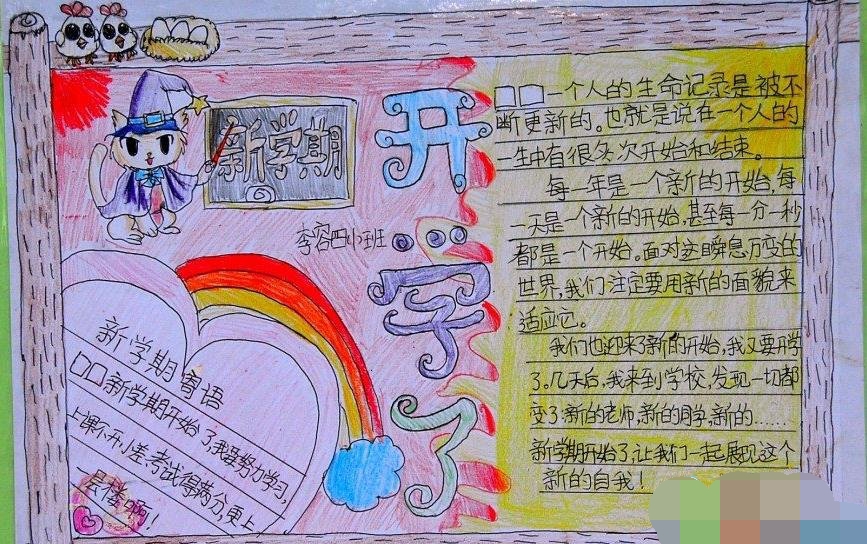 新学期
李容四小班
开学了
新学期寄语
□□新学期开始了,我要努力学习,
上课不开小差,考试得满分,更上
一层楼啊!
□□一个人的生命记录是被不
断更新的。也就是说在一个人的
一生中有很多次开始和结束。
每一年是一个新的开始,每
一天是一个新的开始,甚至每一分一秒
都是一个开始。面对这瞬息万变的
世界,我们注定要用新的面貌来
适应它。
我们也迎来了新的开始,我又要开学
了。几天后,我来到学校,发现一切都
变了新的老师,新的同学,新的……
新学期开始了,让我们一起展现这个
新的自我!